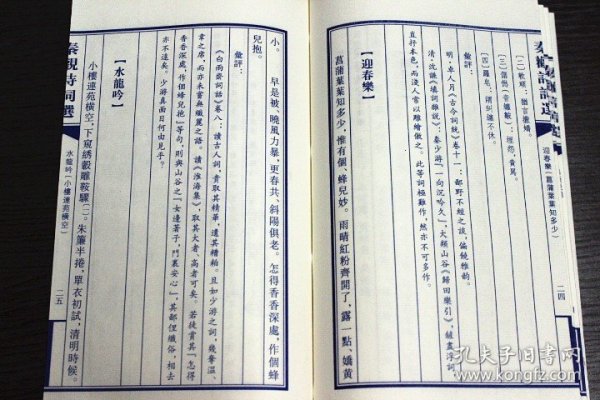 秦觀詩詞選
迎春樂(菖蒲葉葉知多少)
二四
〔二〕軟頑:猶言撒嬌。
〔三〕
〔四〕羅皂:猶糾纏不休。
彙評:
明·卓人月《古今詞統》卷十一:鄙野不經之談,偏饒雅韵。
清·沈謙《填詞雜說》:秦少游「一向沉吟久」,大類山谷《歸田樂引》,鏟盡浮詞,
直抒本色,而淺人常以雕繪傲之。此等詞極難作,然亦不可多作。
【迎春樂】
菖蒲葉葉知多少,惟有個、蜂兒妙。雨晴紅粉齊開了,露一點 嬌黃
小。 早是被、曉風力暴,更春共、斜陽俱老。怎得香香深處,作個蜂
兒抱。
彙評:
《白雨齋詞話》卷八:讀古人詞,貴取其精華,遺其糟粕。且如少游之詞,幾奪溫、
韋之席,而亦未嘗無纖麗之語。讀《淮海集》,取其大者、高者可矣。若徒賞其「怎得
香香深處,作個蜂兒抱」等句,則與山谷之「女邊著子,門裏安心」,其鄙俚纖俗,相去
亦不遠矣。少游真面目何由見乎?
【水龍吟】
小樓連苑橫空,下窺綉轂雕鞍驟〔一〕。朱簾半捲,單衣初試,清明時候。
秦觀詩詞選
水龍吟(小樓連苑橫空)
二五
孔夫子旧书网
www.kongfz.com